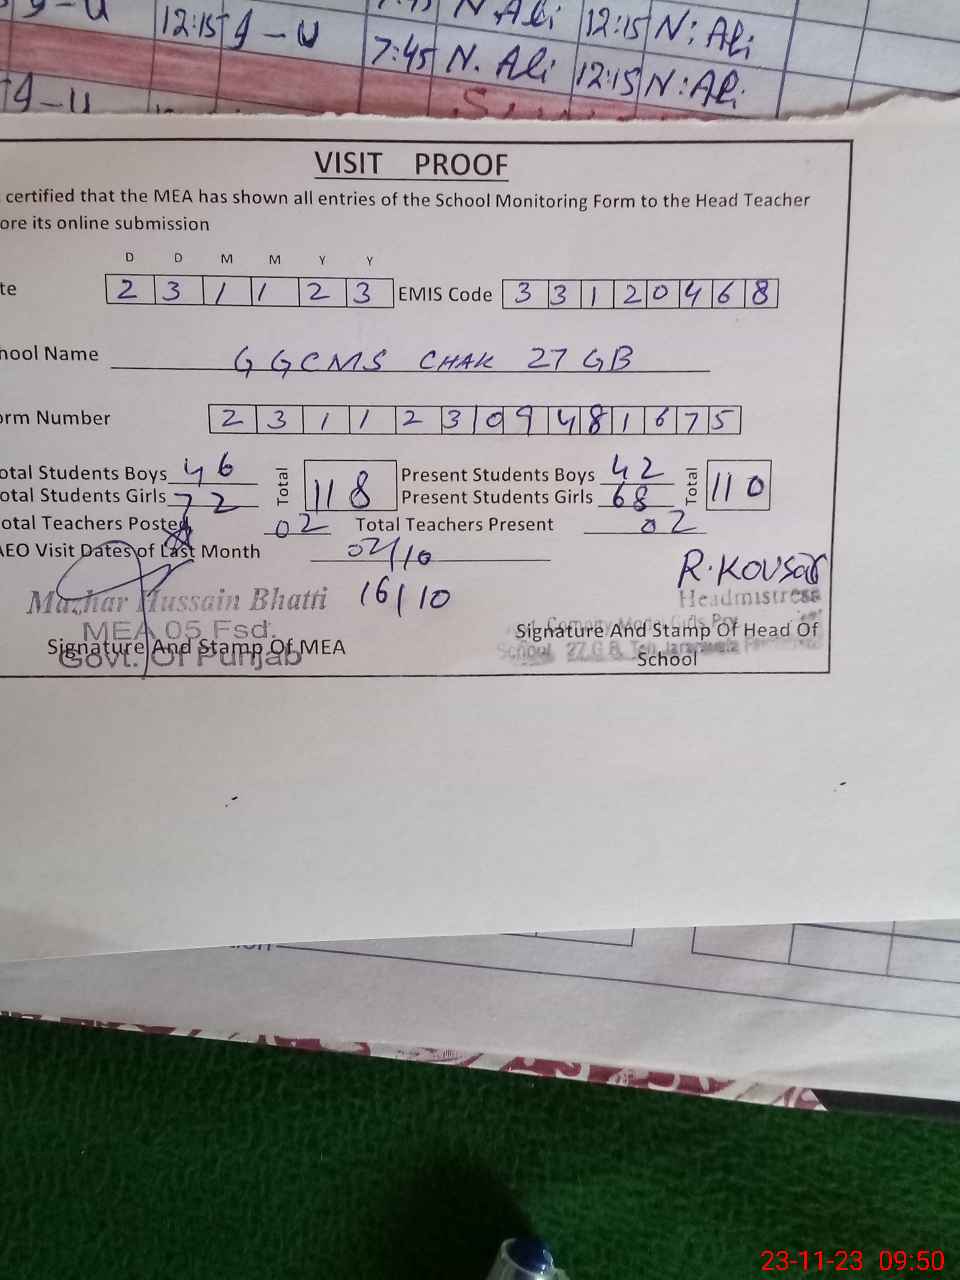 12:15 g-u 7:45 N. Ali 12:15 N: Ali
g-u 7:45 N. Ali 12:15 N: Ali
VISIT PROOF
certified that the MEA has shown all entries of the School Monitoring Form to the Head Teacher
ore its online submission
D D M M Y Y
te 2 3 1 1 2 3 EMIS Code 3 3 1 2 0 4 6 8
hool Name GGCMS CHAK 27 GB
orm Number 2 3 1 1 2 3 0 9 4 8 1 6 7 5
otal Students Boys 46 Total 118 Present Students Boys 42 Total 110
otal Students Girls 72 Present Students Girls 68
otal Teachers Posted 02 Total Teachers Present 02
AEO Visit Dates of Last Month 02/10
16/10 R. Kousar
Mazhar Hussain Bhatti Headmistress
MEA 05 Fsd.
Govt. Of Punjab
Signature And Stamp Of MEA Signature And Stamp Of Head Of
School
23-11-23 09:50